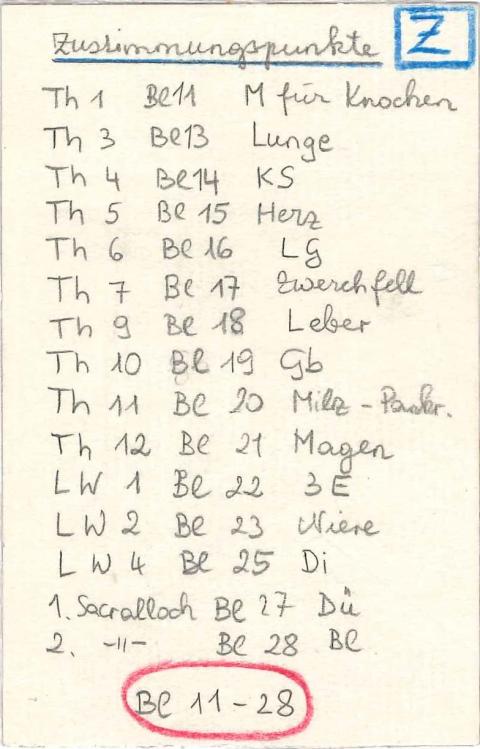 Zustimmungspunkte Z
Th 1 Bl 11 M für Knochen
Th 3 Bl 13 Lunge
Th 4 Bl 14 KS
Th 5 Bl 15 Herz
Th 6 Bl 16 LG
Th 7 Bl 17 Zwerchfell
Th 9 Bl 18 Leber
Th 10 Bl 19 Gb
Th 11 Bl 20 Milz - Pankr.
Th 12 Bl 21 Magen
LW 1 Bl 22 3E
LW 2 Bl 23 Niere
LW 4 Bl 25 Di
1. Sacralloch Bl 27 Dü
2. -"- Bl 28 Bl
Bl 11 - 28